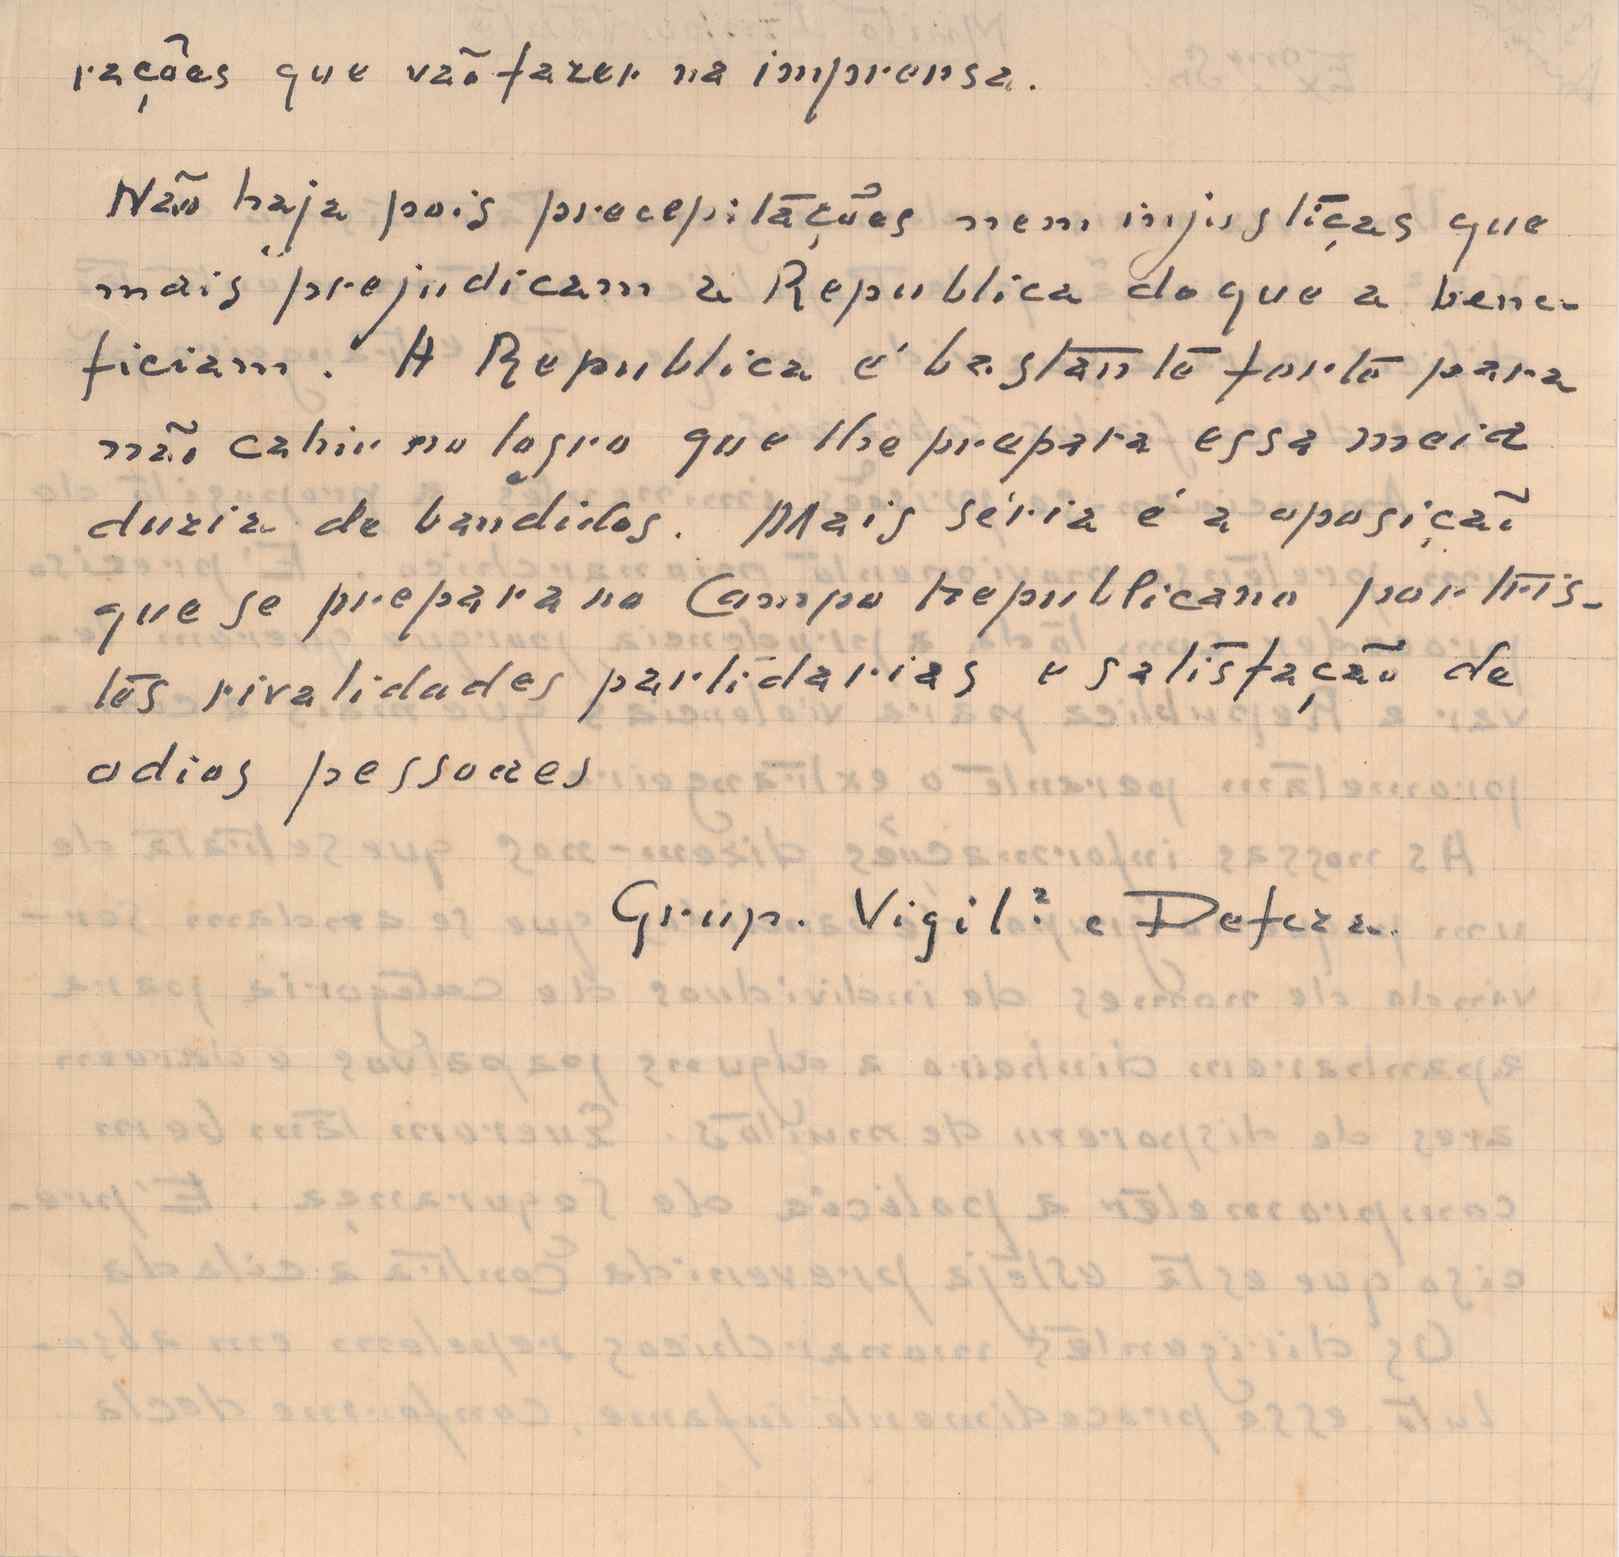 rações que vão fazer na imprensa.
Não haja pois precepitações nem injustiças que
mais prejudicam a Republica do que a bene-
ficiam. A Republica é bastante forte para
não cahir no logro que lhe prepara essa meia
duzia de bandidos. Mais séria é a oposição
que se prepara no Campo Republicano por tris-
tes rivalidades partidarias e satisfação de
odios pessoaes
Grup. Vigil.ª e Defeza.